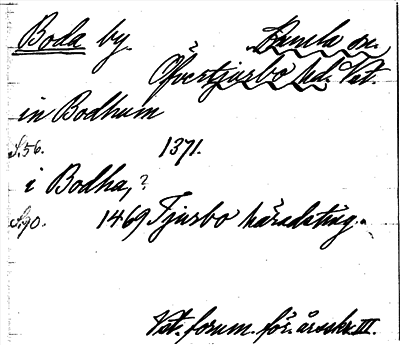 Boda by. Enånda sn.
Öfvertjurbo hd. Vst.
in Bodhum
S. 56. 1371.
i Bodha,?
S. 90. 1469 Tjurbo häradsting.
Vst. fornm. för. årsskr. III.